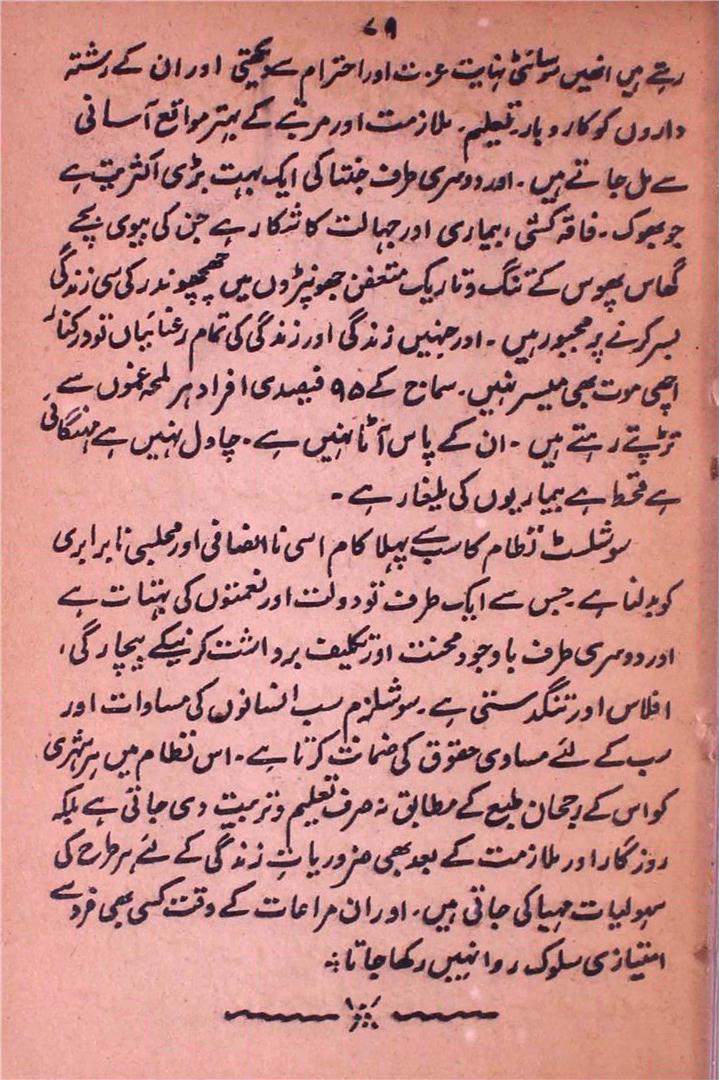 ۷۹
رہتے ہیں انھیں سوسائٹی نہایت عزت اور احترام سے دیکھتی اور ان کے رشتہ
داروں کو کاروبار۔ تعلیم۔ ملازمت اور مرتبے کے بہتر مواقع آسانی
سے مل جاتے ہیں۔ اور دوسری طرف جنتا کی ایک بہت بڑی اکثریت ہے
جو بھوک۔ فاقہ کشی، بیماری اور جہالت کا شکار ہے جن کی بیوی بچے
گھاس پھوس کے تنگ و تاریک متعفن جھونپڑوں میں چھچھوندر کی سی زندگی
بسر کرنے پر مجبور ہیں۔ اور جنہیں زندگی اور زندگی کی تمام رعنائیاں تو درکنار
اچھی موت بھی میسر نہیں۔ سماج کے ۹۵ فیصدی افراد ہر لمحہ غموں سے
تڑپتے رہتے ہیں۔ ان کے پاس آٹا نہیں ہے۔ چاول نہیں ہے مہنگائی
ہے قحط ہے بیماریوں کی یلغار ہے۔
سوشلسٹ نظام کا سب سے پہلا کام اسی نا انصافی اور مجلسی نابرابری
کو بدلنا ہے۔ جس سے ایک طرف تو دولت اور نعمتوں کی بہتات ہے
اور دوسری طرف باوجود محنت اور تکلیف برداشت کرنیکے بیچارگی،
افلاس اور تنگدستی ہے۔ سوشلزم سب انسانوں کی مساوات اور
سب کے لئے مساوی حقوق کی ضمانت کرتا ہے۔ اس نظام میں ہر شہری
کو اس کے رجحان طبع کے مطابق نہ صرف تعلیم و تربیت دی جاتی ہے بلکہ
روزگار اور ملازمت کے بعد بھی ضروریاتِ زندگی کے لئے ہر طرح کی
سہولیات مہیا کی جاتی ہیں۔ اور ان مراعات کے وقت کسی بھی فرد سے
امتیازی سلوک روا نہیں رکھا جاتا۔